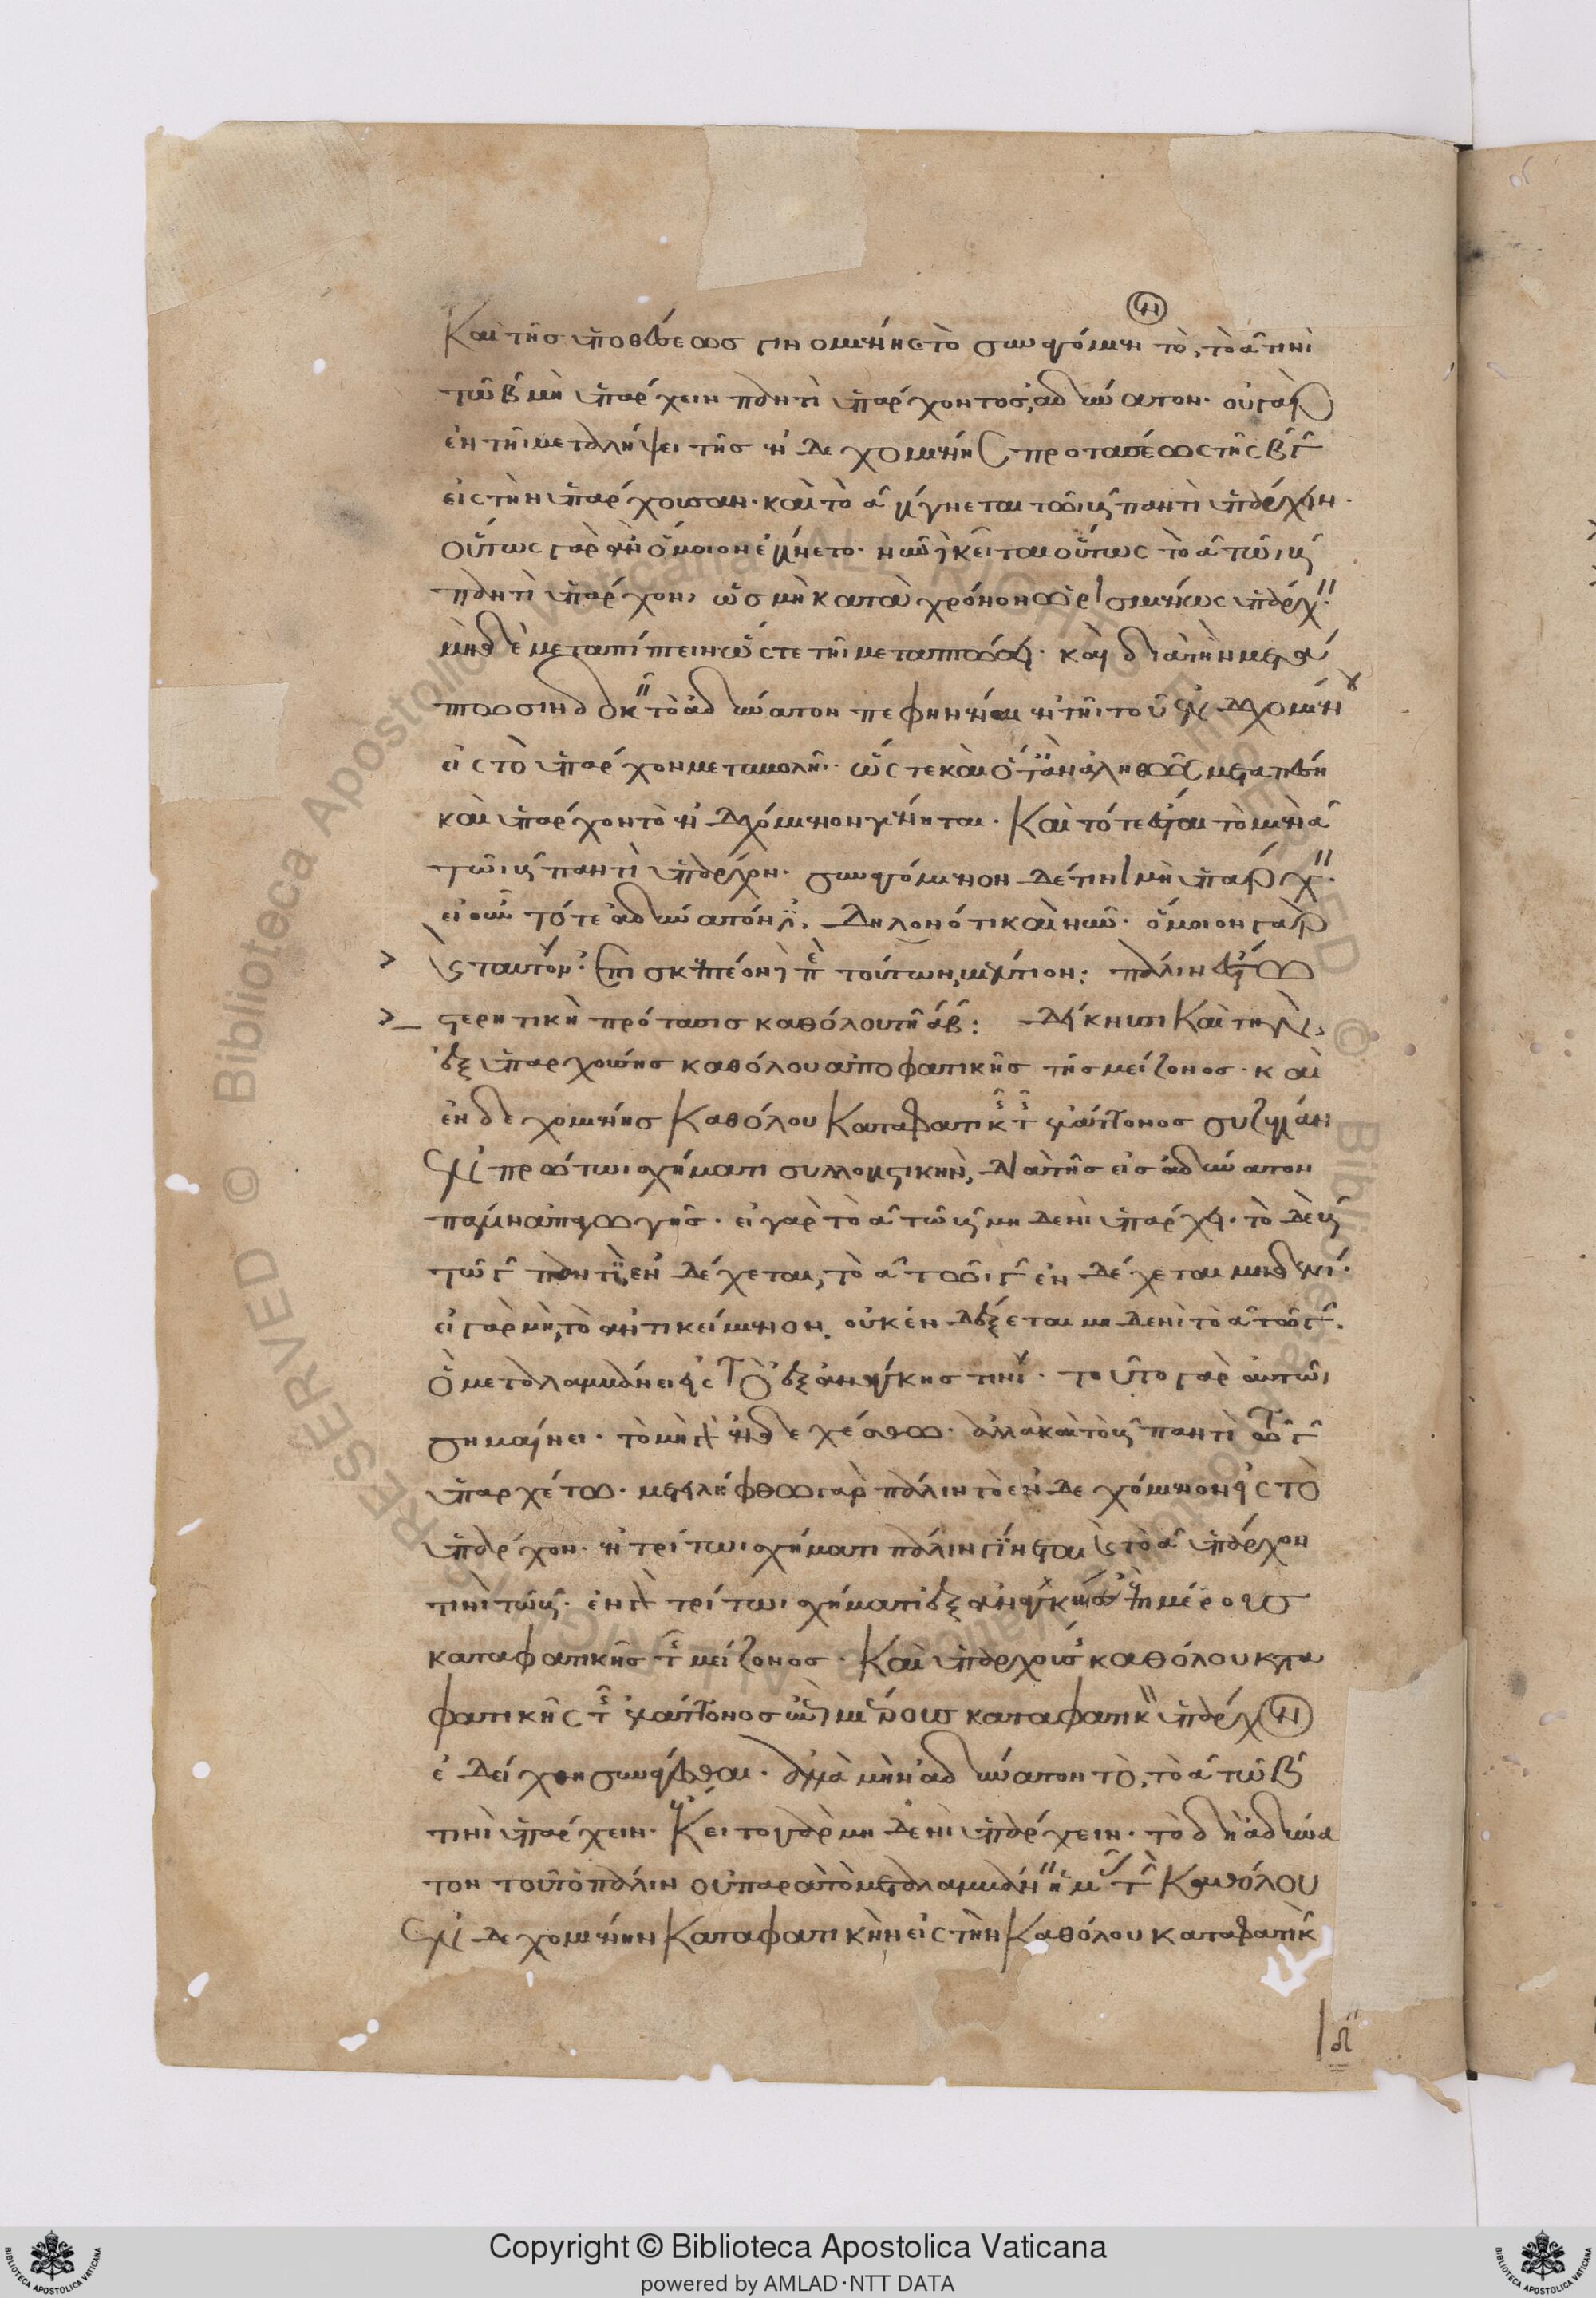 Καὶ τῆς ὑποθέσεως γινομένης τὸ συναγόμενον τὸ, τὸ α τινὶ
τῶ β μὴ ὑπάρχειν παντὶ ὑπάρχοντος, ἀδύνατον. οὐ γὰρ
ἐν τῆι μεταλήψει τῆς ἐνδεχομένης προτάσεως τῆς βγ
εἰς τὴν ὑπάρχουσαν. καὶ τὸ α γίγνεται τῶι γ παντὶ ὑπάρχειν.
οὕτως γὰρ ἂν ὅμοιον ἐγίνετο. νῦν κεῖται οὕτως τὸ α τῶι γ
παντὶ ὑπάρχον, ὡς μὴ κατὰ χρόνον ὡρισμένως ὑπάρχειν
μηδὲ μεταπίπτειν ὥστε τῆι μεταπτώσει. καὶ διὰ τὴν μετά
πτωσιν δοκεῖ τὸ ἀδύνατον πεφηνέναι ἐν τῆι τοῦ ἐνδεχομένου
εἰς τὸ ὑπάρχον μεταβολῆι. ὥστε καὶ ὅταν ἀληθῶς μεταπέσηι
καὶ ὑπάρχον τὸ ἐνδεχόμενον γένηται. Καὶ τότε ἔσται τὸ μὲν α
τῶι γ παντὶ ὑπάρχον. συναγόμενον δέ τινι μὴ ὑπάρχειν.
εἰ οὖν τότε ἀδύνατον, δηλονότι καὶ νῦν. ὅμοιον γὰρ
ἐς ταυτόν. ἐπισκεπτέον περὶ τούτων βέλτιον: πάλιν ἔστω
στερητικὴ πρότασις καθόλου τῆι αβ: Δείκνυσι Καὶ τὴν
ἐξ ὑπαρχούσης καθόλου ἀποφατικῆς τῆς μείζονος. καὶ
ἐνδεχομένης Καθόλου Καταφατικῆς τῆς ἐλάττονος συζυγίαν
ἐν πρώτωι σχήματι συλλογιστικὴν, διὰ τῆς εἰς ἀδύνατον
πάλιν ἀπαγωγῆς. εἰ γὰρ τὸ α τῶ β μηδενὶ ὑπάρχει. τὸ δὲ β
τῶ γ παντὶ ἐνδέχεται, τὸ α τῶι γ ἐνδέχεται μηδενί.
εἰ γὰρ μὴ, τὸ ἀντικείμενον. οὐκ ἐνδέξεται μηδενὶ τὸ α τῶ γ.
ὃ μεταλαμβάνει εἰς τὸ ἐξ ἀνάγκης τινί. τοῦτο γὰρ αὐτῶι
σημαίνει. τὸ μὴ ἐνδεχέσθω. ἀλλὰ καὶ τὸ β παντὶ τῶ γ
ὑπαρχέτω. μετειλήφθω γὰρ πάλιν τὸ ἐνδεχόμενον εἰς τὸ
ὑπάρχον. ἐν τρίτωι σχήματι πάλιν γίνεται τὸ α ὑπάρχον
τινὶ τῶ β. ἐν τρίτωι σχήματι ἐξ ἀναγκαίας ἐπὶ μέρους
καταφατικῆς τῆς μείζονος. Καὶ ὑπαρχούσης καθόλου κατα
φατικῆς τῆς ἐλάττονος ἐπὶ μέρους καταφατικὴν ὑπάρχουσαν
ἐδείχθη συνάγεσθαι. ἀλλὰ μὴν ἀδύνατον τὸ, τὸ α τῶ β
τινὶ ὑπάρχειν. Κεῖτο γὰρ μηδενὶ ὑπάρχειν. τὸ δὴ ἀδύνα
τον τοῦτο πάλιν οὐ παρὰ τὸ μεταλαμβάνειν ἡμᾶς τὴν Καθόλου
ἐνδεχομένην Καταφατικὴν εἰς τὴν Καθόλου καταφατικὴν